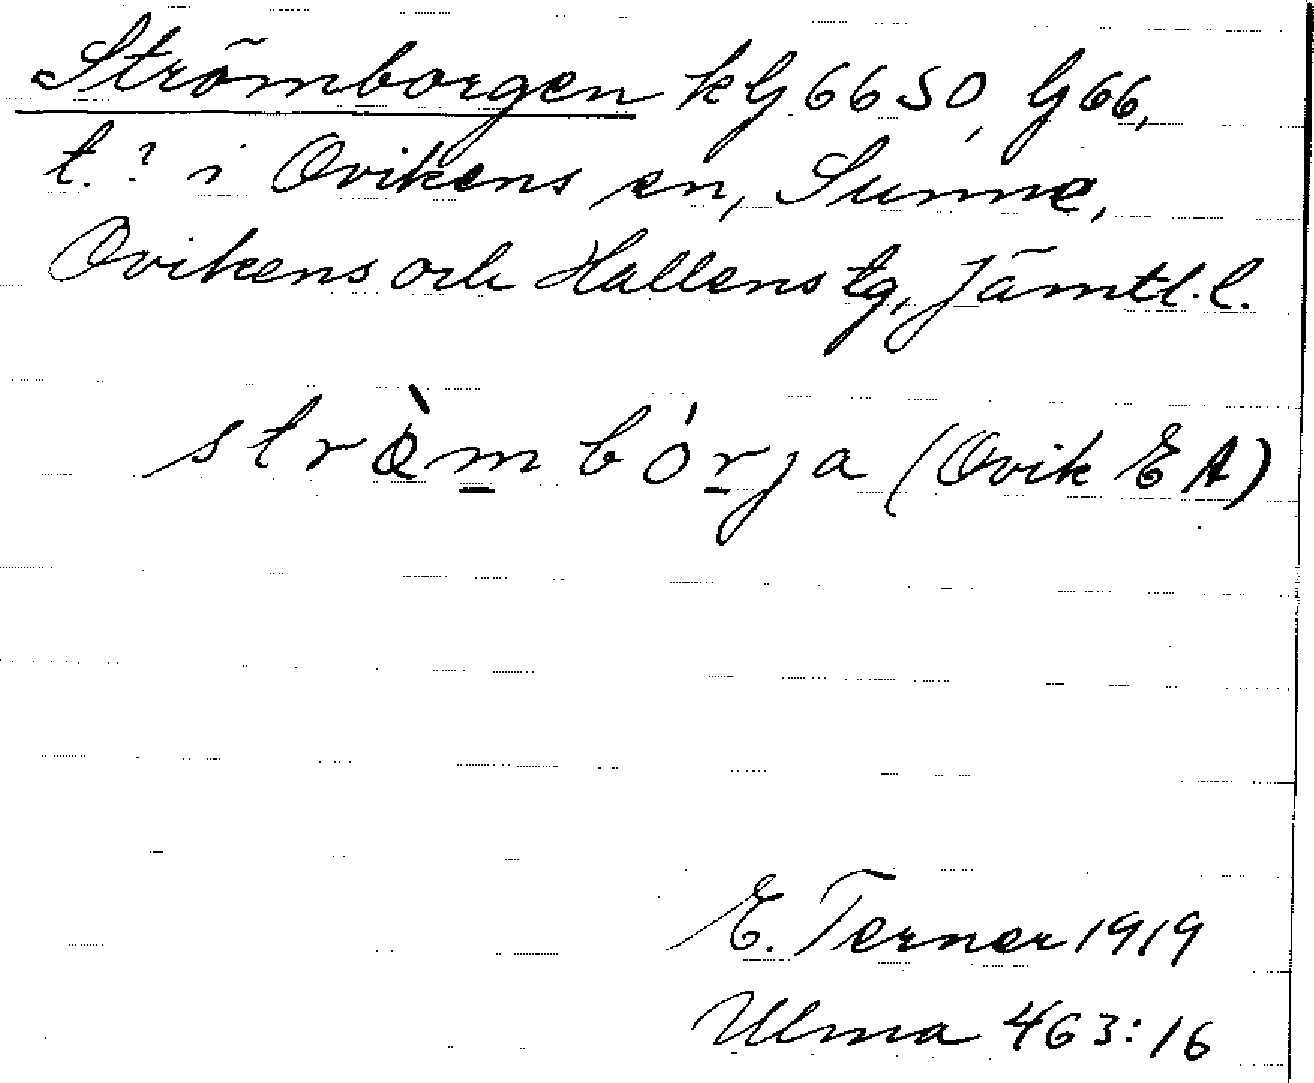 Strömborgen kG 66 SO, G 66,
t.? i Ovikens sn, Sunne,
Ovikens och Hallens tg, Jämtl. l.
strø̀m bórja (Ovik E A)
E. Terner 1919
Ulma 463:16